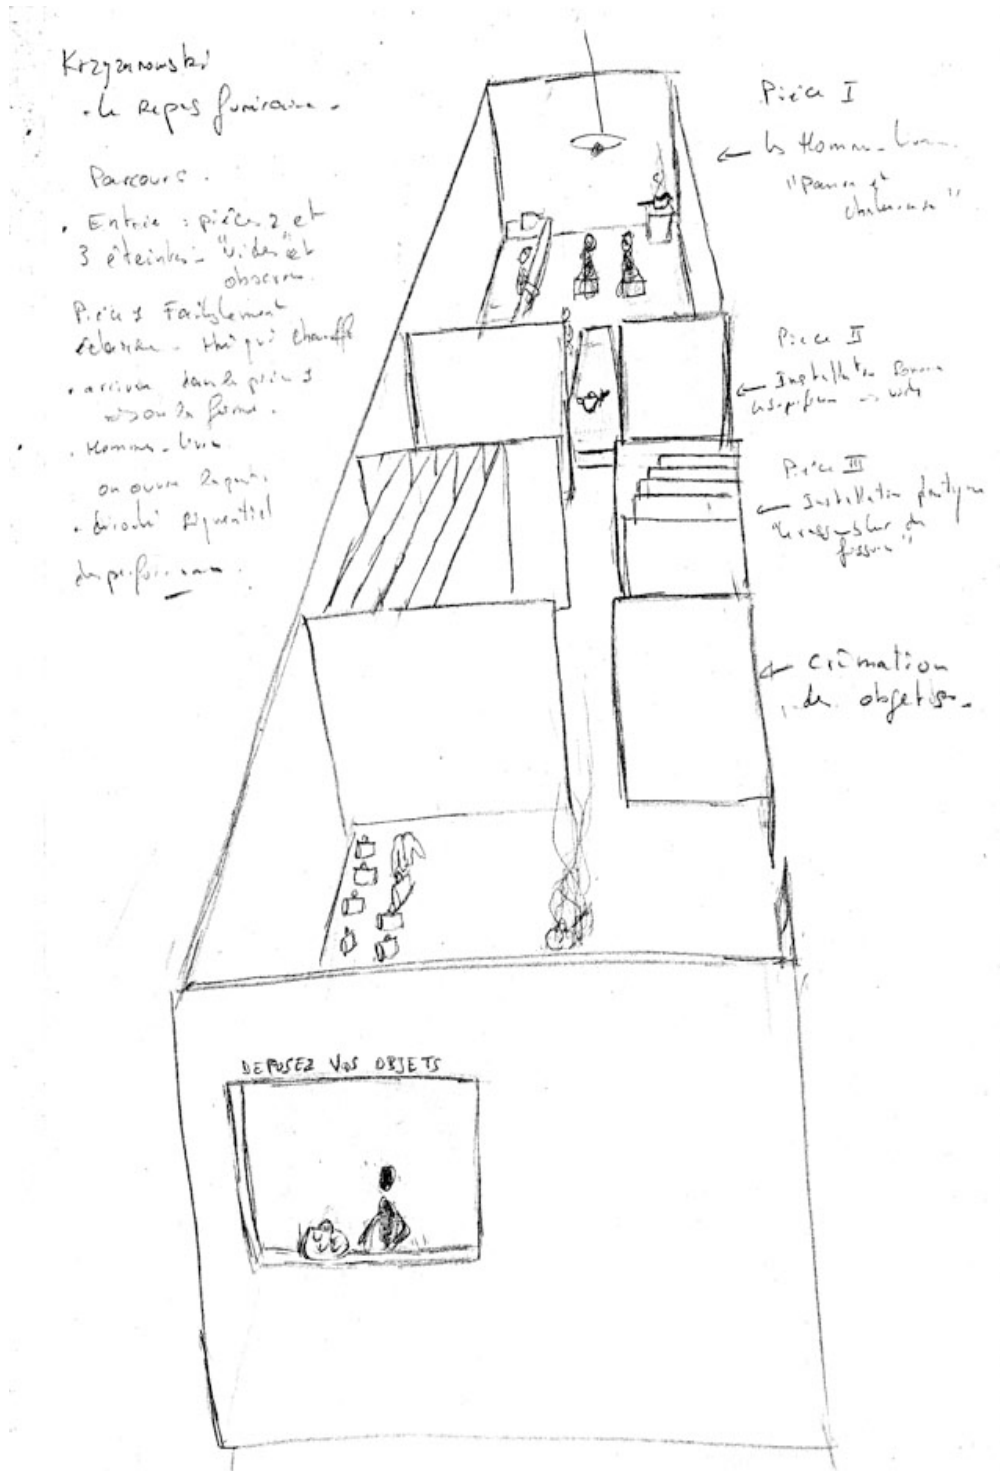 Krzyzanowski
. le repas funéraire.
Parcours.
. Entrée : pièces 2 et
3 éteintes - "vides" et
obscures.
Pièce 1 Faiblement
éclairée - thé qui chauffe
. arrivée dans la pièce 1
. Homme-livre
on ouvre
. déroulé séquentiel
des performances.
Pièce I
← les Homme-livre
"Pauvre et
chaleureuse"
Pièce II
← Installation sonore
Pièce III
← Installation plastique
"le rassembleur de
fissures"
← crémation
des objets.
DEPOSEZ VOS OBJETS